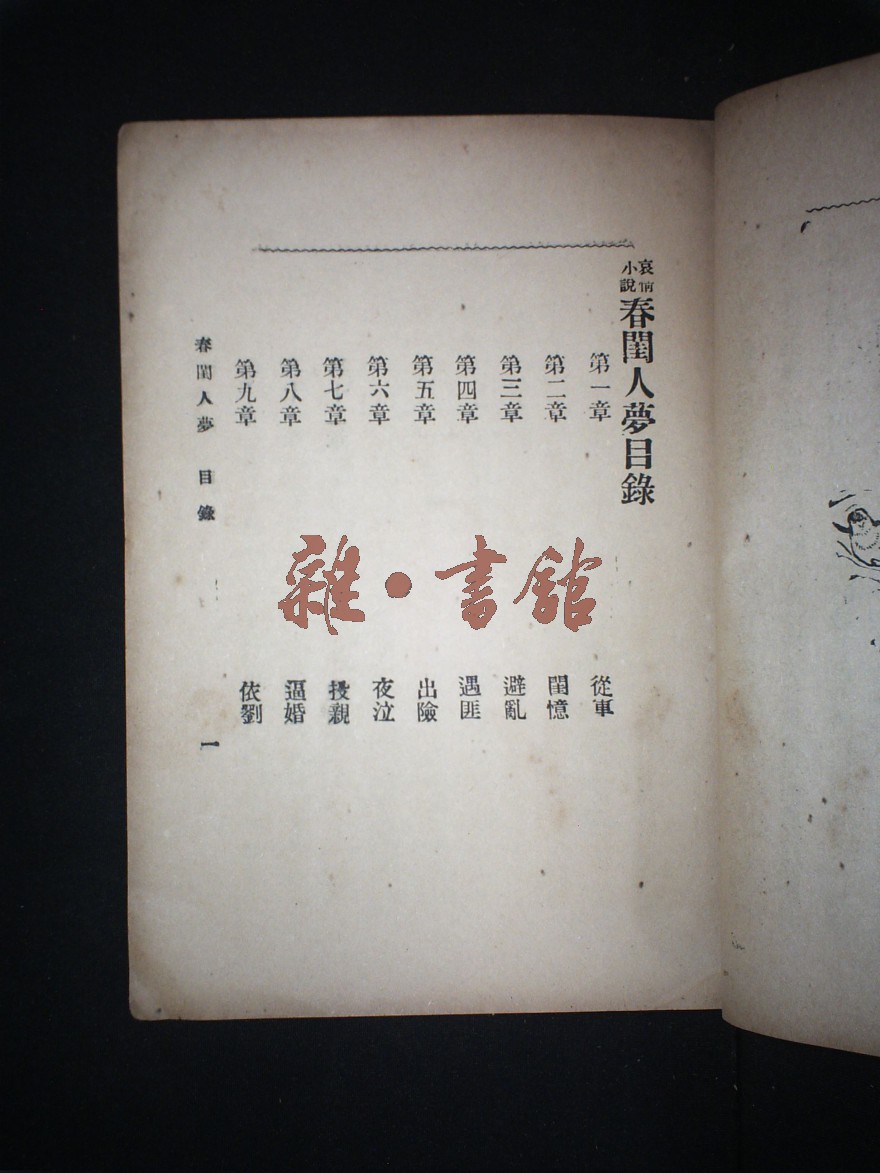 哀情
小說
春閨人夢目錄
第一章 從軍
第二章 閨憶
第三章 避亂
第四章 遇匪
第五章 出險
第六章 夜泣
第七章 投親
第八章 逼婚
第九章 依劉
春閨人夢 目錄 一
雜•書館